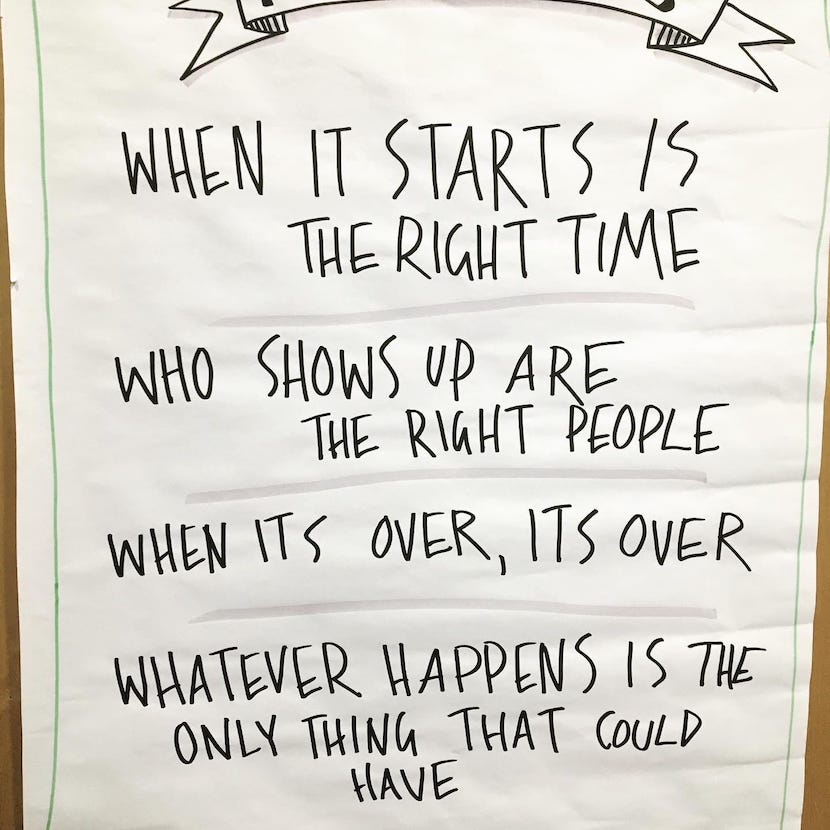 WHEN IT STARTS IS
THE RIGHT TIME
WHO SHOWS UP ARE
THE RIGHT PEOPLE
WHEN ITS OVER, ITS OVER
WHATEVER HAPPENS IS THE
ONLY THING THAT COULD
HAVE